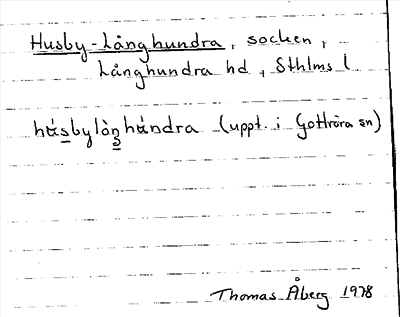 Husby-Långhundra, socken,
Långhundra hd, Sthlms l
húsbylàŋhúndra (uppt. i Gottröra sn)
Thomas Åberg 1978